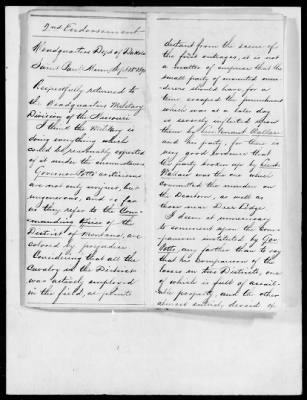 2nd Endorsement
Headquarters Dept of Dakota
Saint Paul Minn
Respectfully returned to
the Headquarters Military
Division of the Missouri
I think the Military is
doing everything which
could be reasonably expected
of it under the circumstances
Governor Potts' criticisms
are not only unjust, but
ungenerous, and so far
as they refer to the Com-
manding Officer of the
District of Montana, are
colored by prejudice
Considering that all the
Cavalry in the District
was actively employed
in the field, at points
distant from the scene of
the first outrages, it is not
a matter of surprise that the
small party of mounted mur-
derers should have, for a
time escaped the punishment
which was at a later day
so severely inflicted upon
them by Lieutenant Wallace
and his party, for there is
very good evidence that
the party broken up by Lieut
Wallace was the one which
committed the murders on
the Dearborn, as well as
those near Deer Lodge
I deem it unnecessary
to comment upon the com-
parisons instituted by Gov
Potts, any further than to say
that his comparison of the
losses in two Districts, one
of which is full of avail-
able property, and the other
almost entirely devoid of